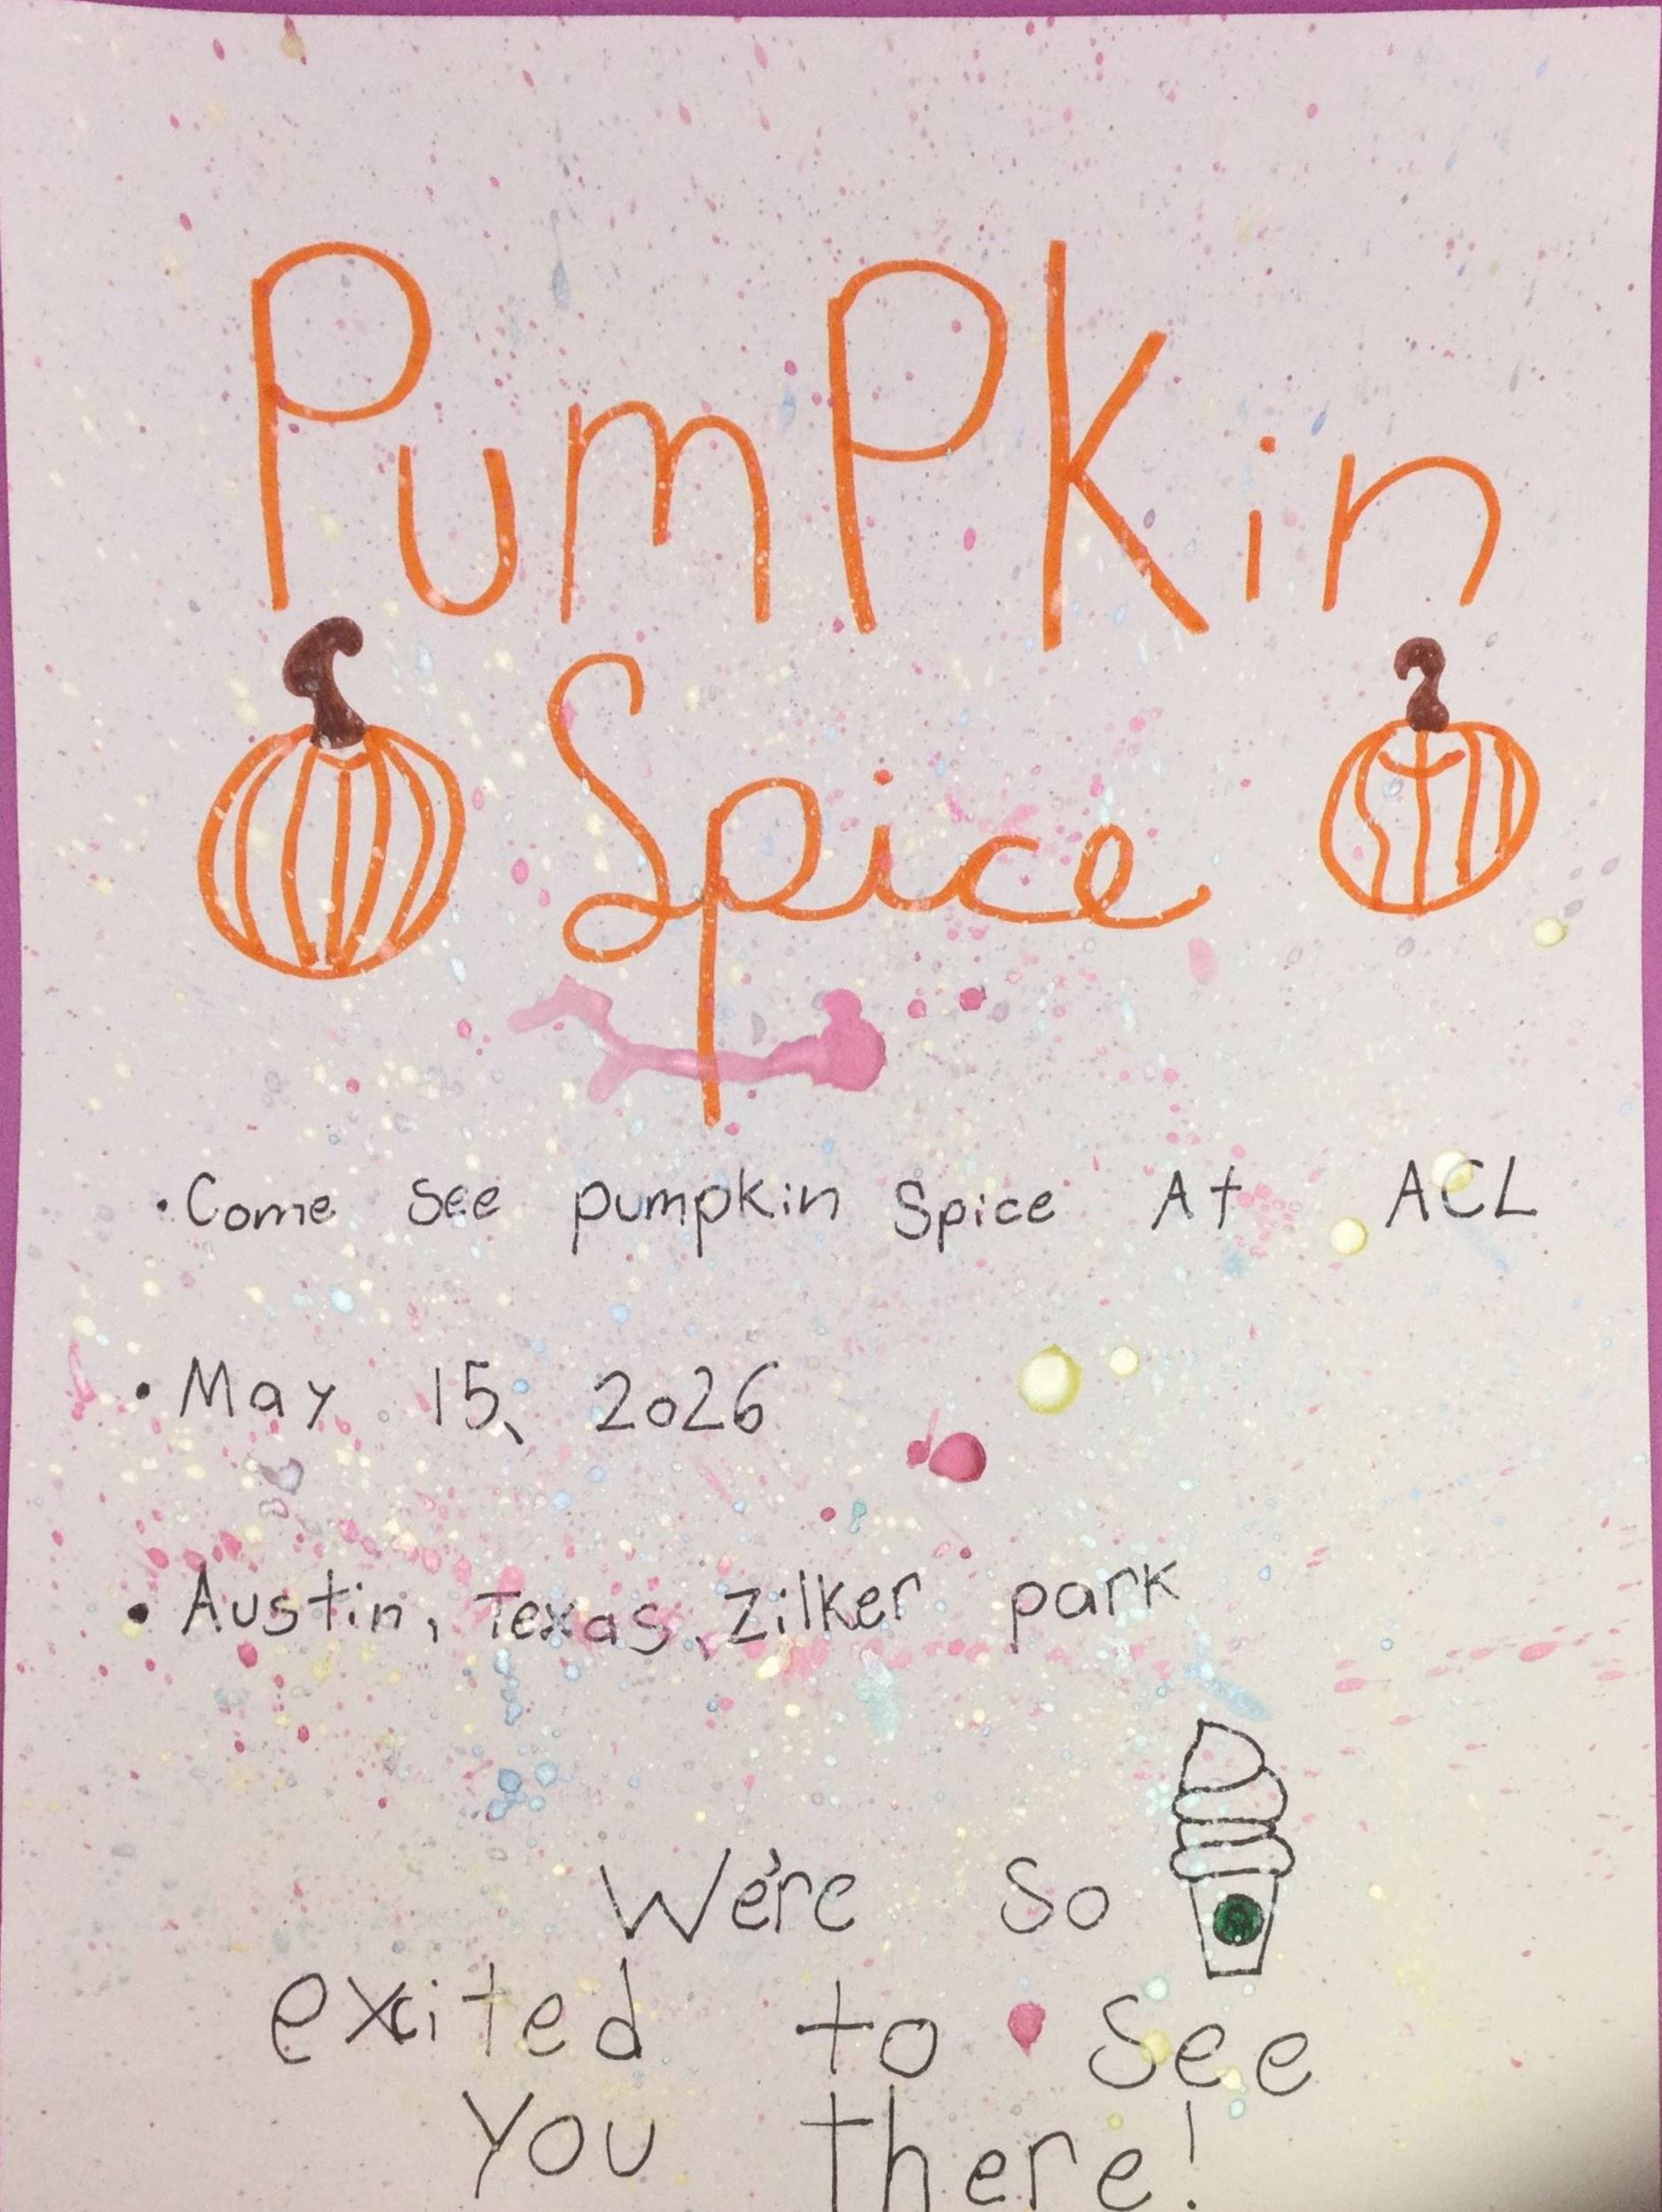 PumPKin
Spice
• Come see pumpkin Spice At ACL
• May 15, 2026
• Austin, Texas, Zilker park
We're So
excited to See
You there!